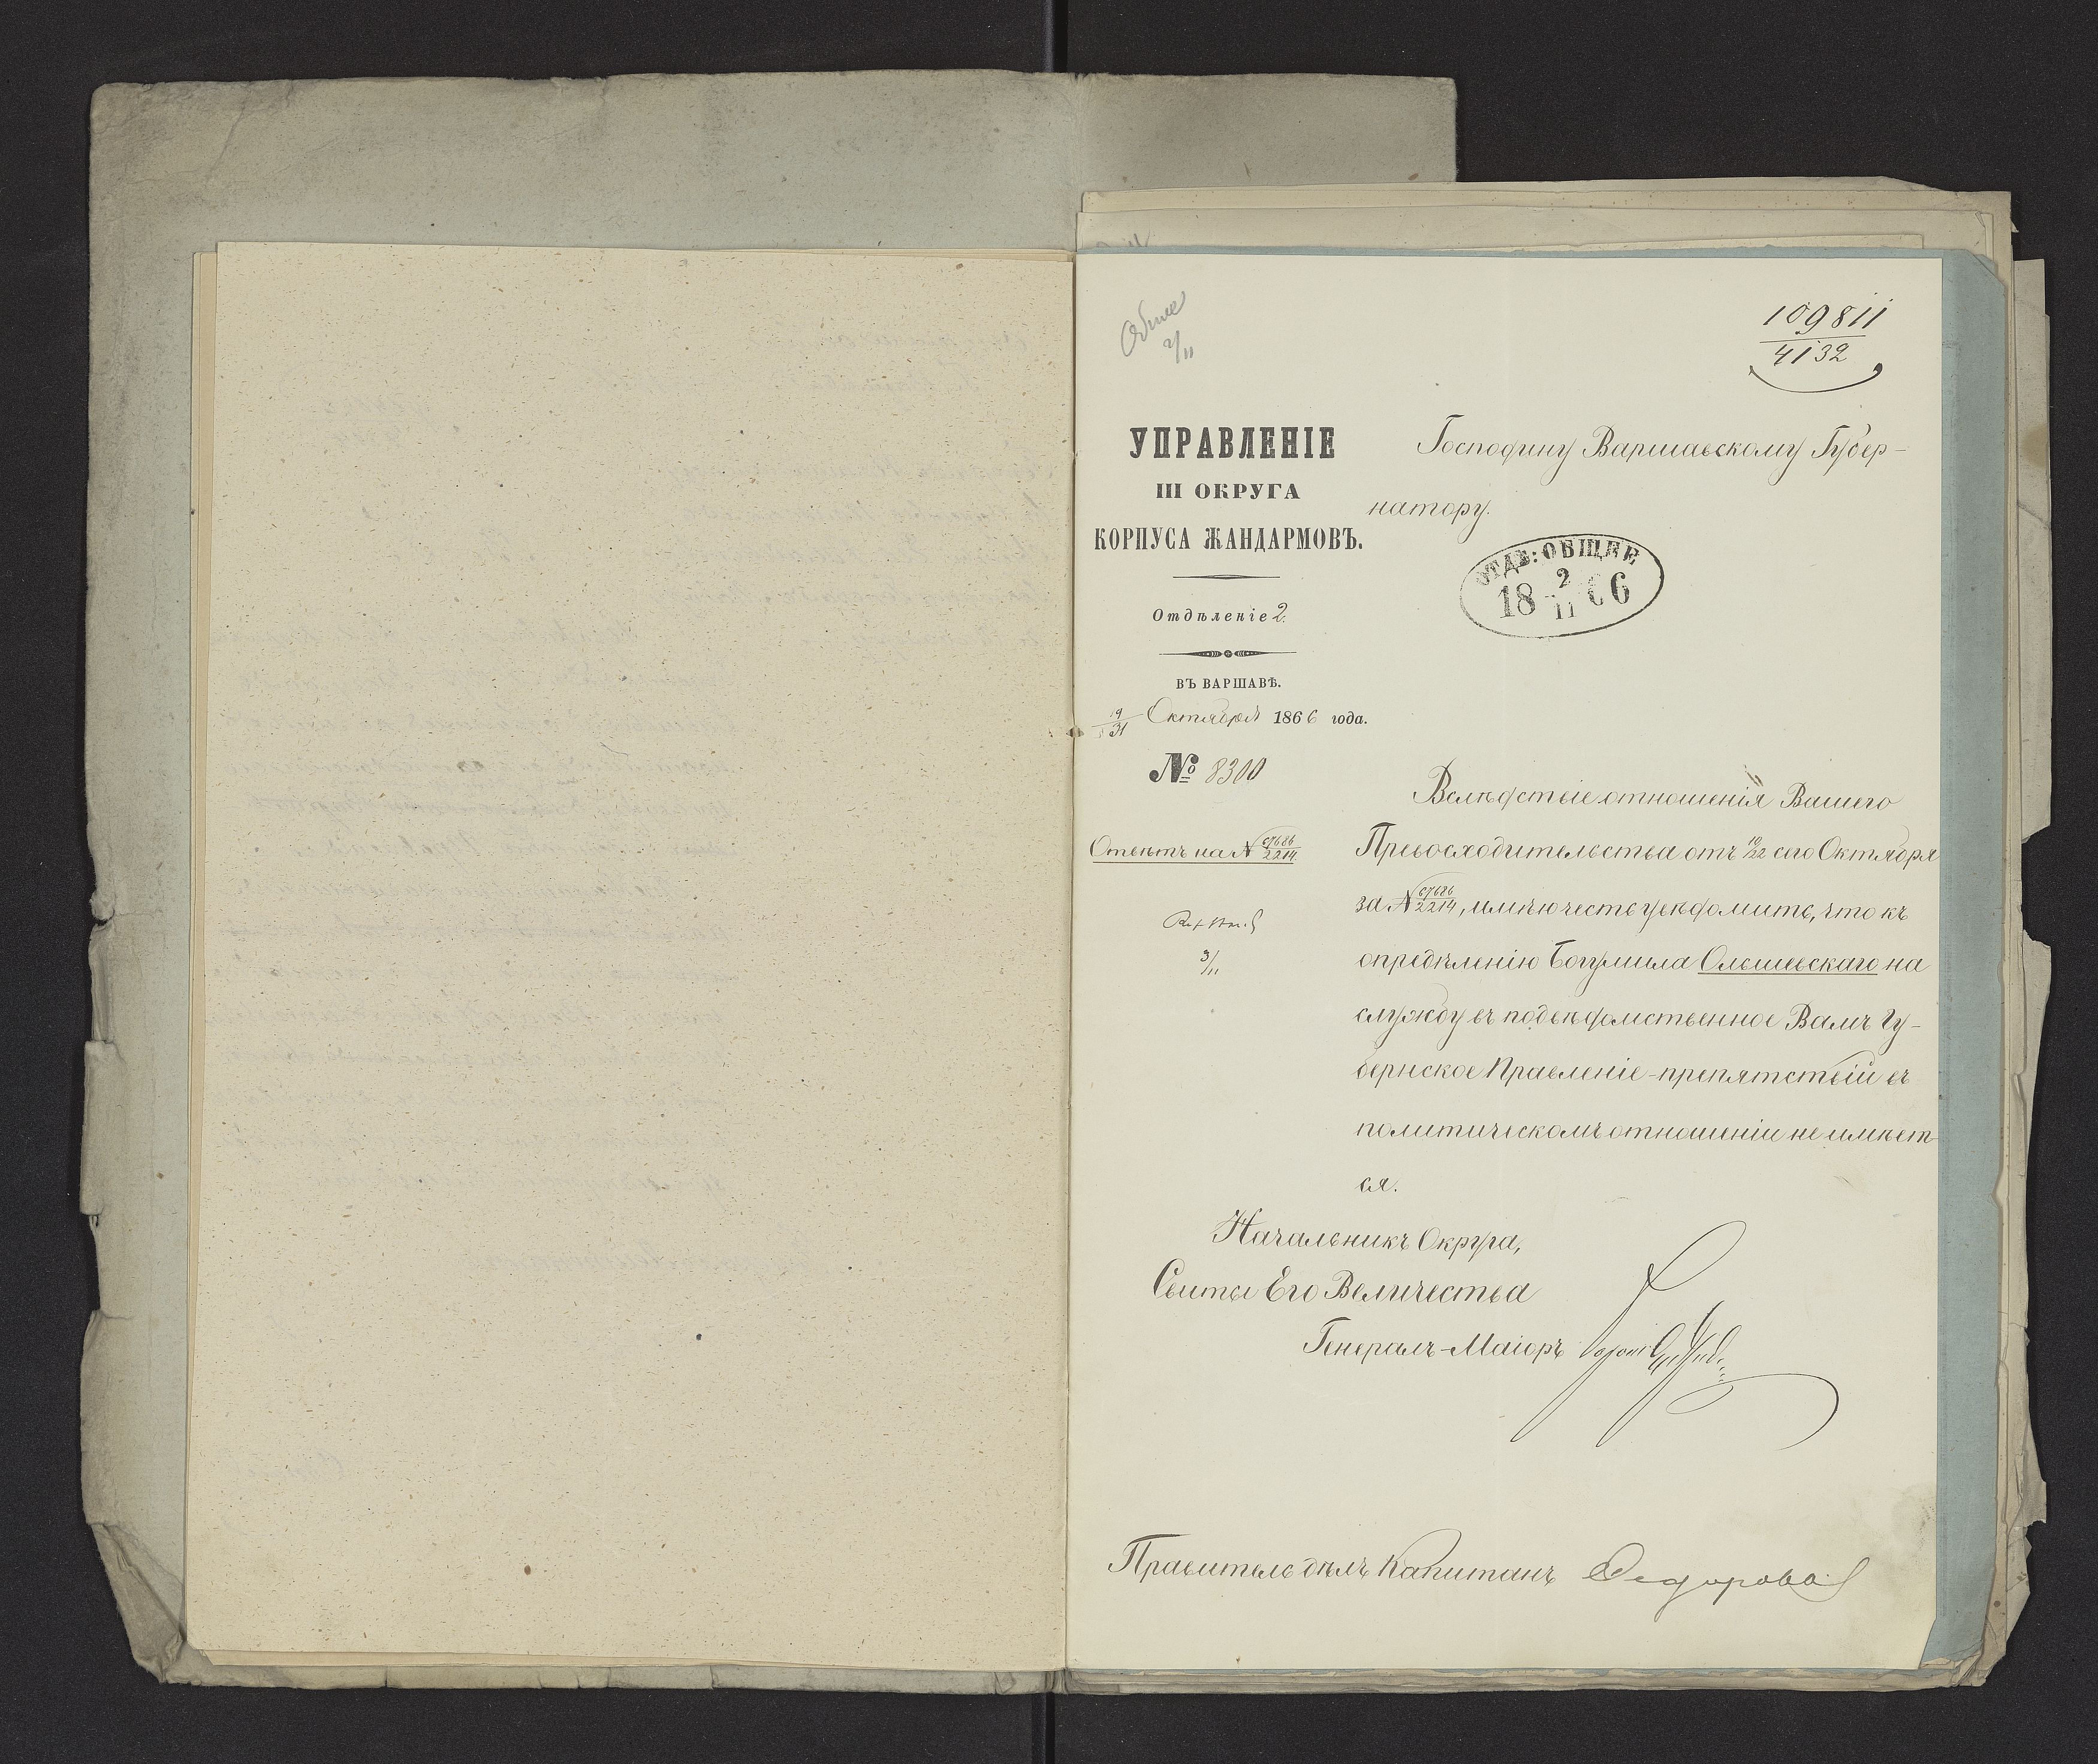 Общее
2/11
109811
4132
УПРАВЛЕНІЕ
III ОКРУГА
КОРПУСА ЖАНДАРМОВЪ.
Отдѣленіе 2.
ВЪ ВАРШАВѢ.
19/31 Октября 1866 года.
№ 8300
Отвѣтъ на № 67686/2214
3/11
Господину Варшавскому Губер-
натору.
ОТДѢ: ОБЩЕЕ.
18 2/11 66
Вслѣдствіе отношенія Вашего
Превосходительства отъ 10/22 сего Октября
за № 67686/2214, имѣю честь увѣдомить, что къ
опредѣленію Богумила Ольшевскаго на
службу въ подвѣдомственное Вамъ Гу-
бернское Правленіе - препятствій въ
политическомъ отношеніи не имѣет-
ся.
Начальникъ Округа,
Свиты Его Величества
Генералъ-Маіоръ
Правитель дѣлъ Капитанъ